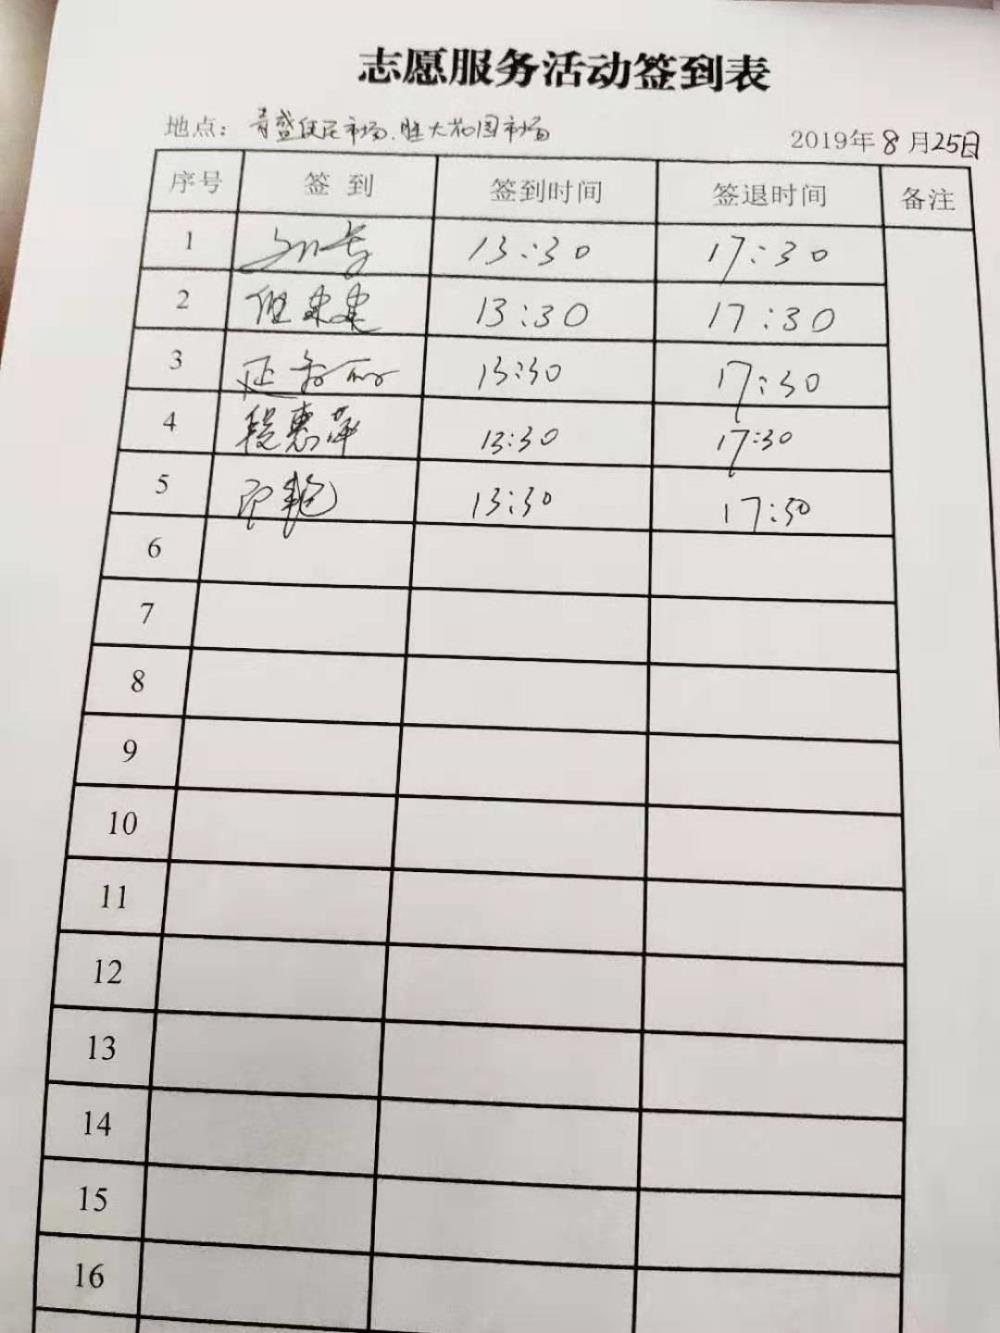 志愿服务活动签到表
地点：青盛便民市场、胜大花园市场
2019年8月25日
序号 签到 签到时间 签退时间 备注
1 13:30 17:30
2 13:30 17:30
3 13:30 17:30
4 段惠萍 13:30 17:30
5 13:30 17:30
6
7
8
9
10
11
12
13
14
15
16